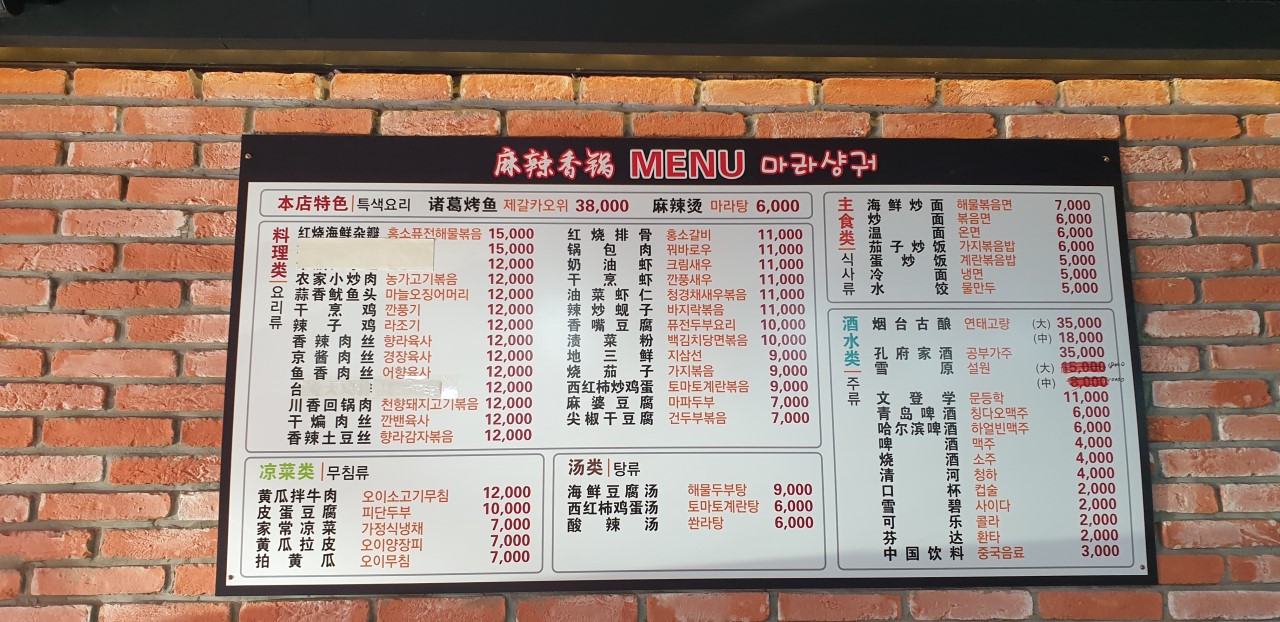 麻辣香锅 MENU 마라샹궈
本店特色 | 특색요리 诸葛烤鱼 제갈카오위 38,000 麻辣烫 마라탕 6,000
料理类 요리류
红烧海鲜杂瓣 홍소퓨전해물볶음 15,000
15,000
12,000
农家小炒肉 농가고기볶음 12,000
蒜香鱿鱼头 마늘오징어머리 12,000
干烹鸡 깐풍기 12,000
辣子鸡 라조기 12,000
香辣肉丝 향라육사 12,000
京酱肉丝 경장육사 12,000
鱼香肉丝 어향육사 12,000
台 12,000
川香回锅肉 천향돼지고기볶음 12,000
干煸肉丝 깐밴육사 12,000
香辣土豆丝 향라감자볶음 12,000
红烧排骨 홍소갈비 11,000
锅包肉 꿔바로우 11,000
奶油虾 크림새우 11,000
干烹虾 깐풍새우 11,000
油菜虾仁 청경채새우볶음 11,000
辣炒蚬子 바지락볶음 11,000
香嘴豆腐 퓨전두부요리 10,000
渍菜粉 백김치당면볶음 10,000
地三鲜 지삼선 9,000
烧茄子 가지볶음 9,000
西红柿炒鸡蛋 토마토계란볶음 9,000
麻婆豆腐 마파두부 7,000
尖椒干豆腐 건두부볶음 7,000
凉菜类 | 무침류
黄瓜拌牛肉 오이소고기무침 12,000
皮蛋豆腐 피단두부 10,000
家常凉菜 가정식냉채 7,000
黄瓜拉皮 오이양장피 7,000
拍黄瓜 오이무침 7,000
汤类 | 탕류
海鲜豆腐汤 해물두부탕 9,000
西红柿鸡蛋汤 토마토계란탕 6,000
酸辣汤 쏸라탕 6,000
主食类 식사류
海鲜炒面 해물볶음면 7,000
炒面 볶음면 6,000
温面 온면 6,000
茄子炒饭 가지볶음밥 6,000
蛋炒饭 계란볶음밥 5,000
冷面 냉면 5,000
水饺 물만두 5,000
酒水类 주류
烟台古酿 연태고량 (大) 35,000
(中) 18,000
孔府家酒 공부가주 35,000
雪原 설원 (大) 15,000
(中) 8,000
文登学 문등학 11,000
青岛啤酒 칭다오맥주 6,000
哈尔滨啤酒 하얼빈맥주 6,000
啤酒 맥주 4,000
烧酒 소주 4,000
清河 청하 4,000
口杯 컵술 2,000
雪碧 사이다 2,000
可乐 콜라 2,000
芬达 환타 2,000
中国饮料 중국음료 3,000